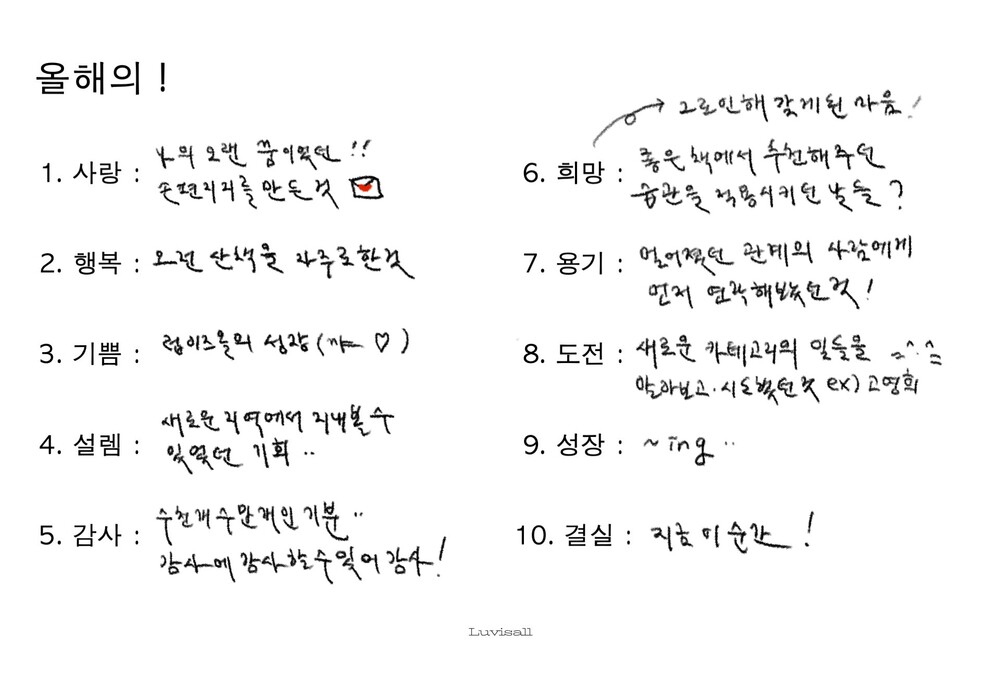 올해의 !
1. 사랑 : 나의 오랜 꿈이었던 !!
손편지지를 만든 것
2. 행복 : 오전 산책을 자주로한것
3. 기쁨 : 럽이즈올의 성장 (꺄 ♡)
4. 설렘 : 새로운 지역에서 지내볼 수
있었던 기회 ..
5. 감사 : 수천개 수만개인 기분 ..
감사에 감사할 수 있어 감사!
→ 그로인해 갖게된 마음!
6. 희망 : 좋은 책에서 추천해주던
습관을 적용시키던 날들 ?
7. 용기 : 멀어졌던 관계의 사람에게
먼저 연락해보았던 것 !
8. 도전 : 새로운 카테고리의 일들을 =^.^=
알아보고·시도했던 것 ex) 고영희
9. 성장 : ~ing ..
10. 결실 : 지금 이 순간 !
Luvisall